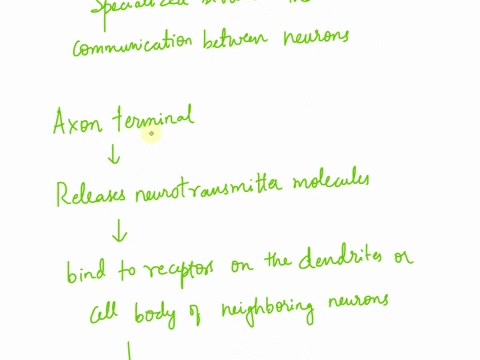 Specialized
communication between neurons
Axon terminal
↓
Releases neurotransmitter molecules
↓
bind to receptors on the dendrites or
cell body of neighboring neurons